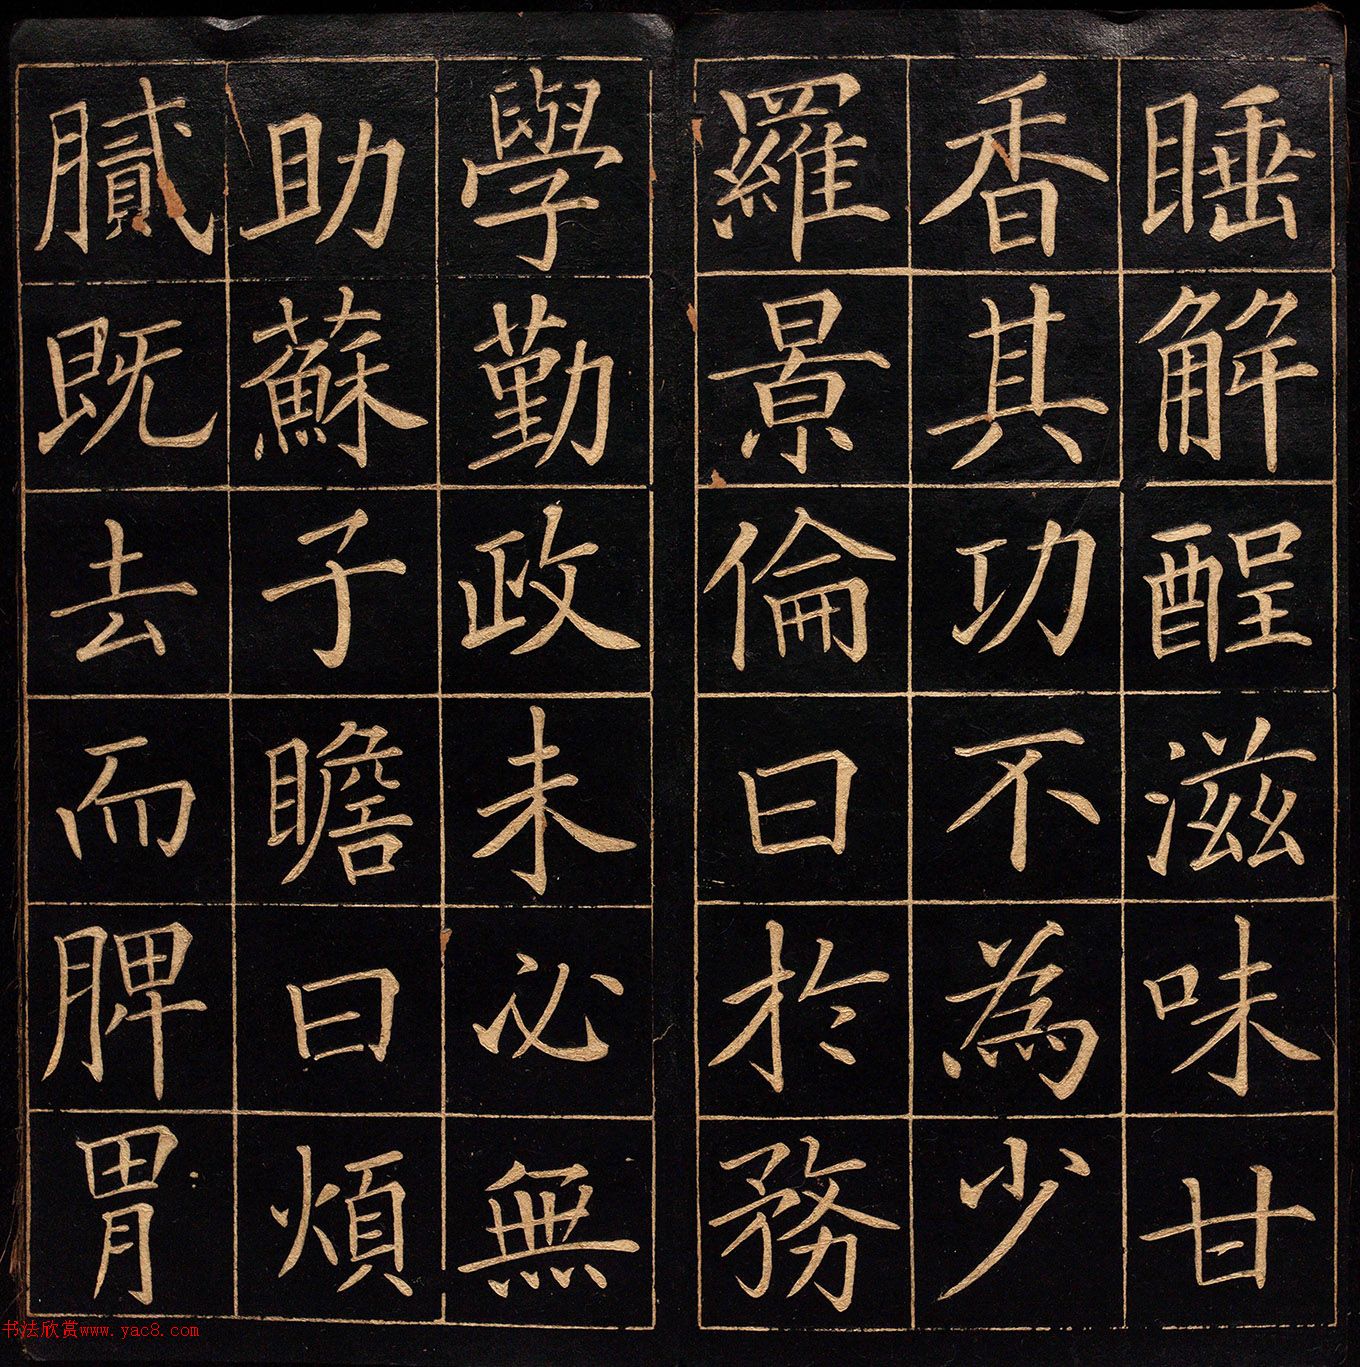 睡解酲滋味甘
香其功不為少
羅景倫曰於務
學勤政未必無
助蘇子瞻曰煩
膩既去而脾胃
书法欣赏www.yac8.com